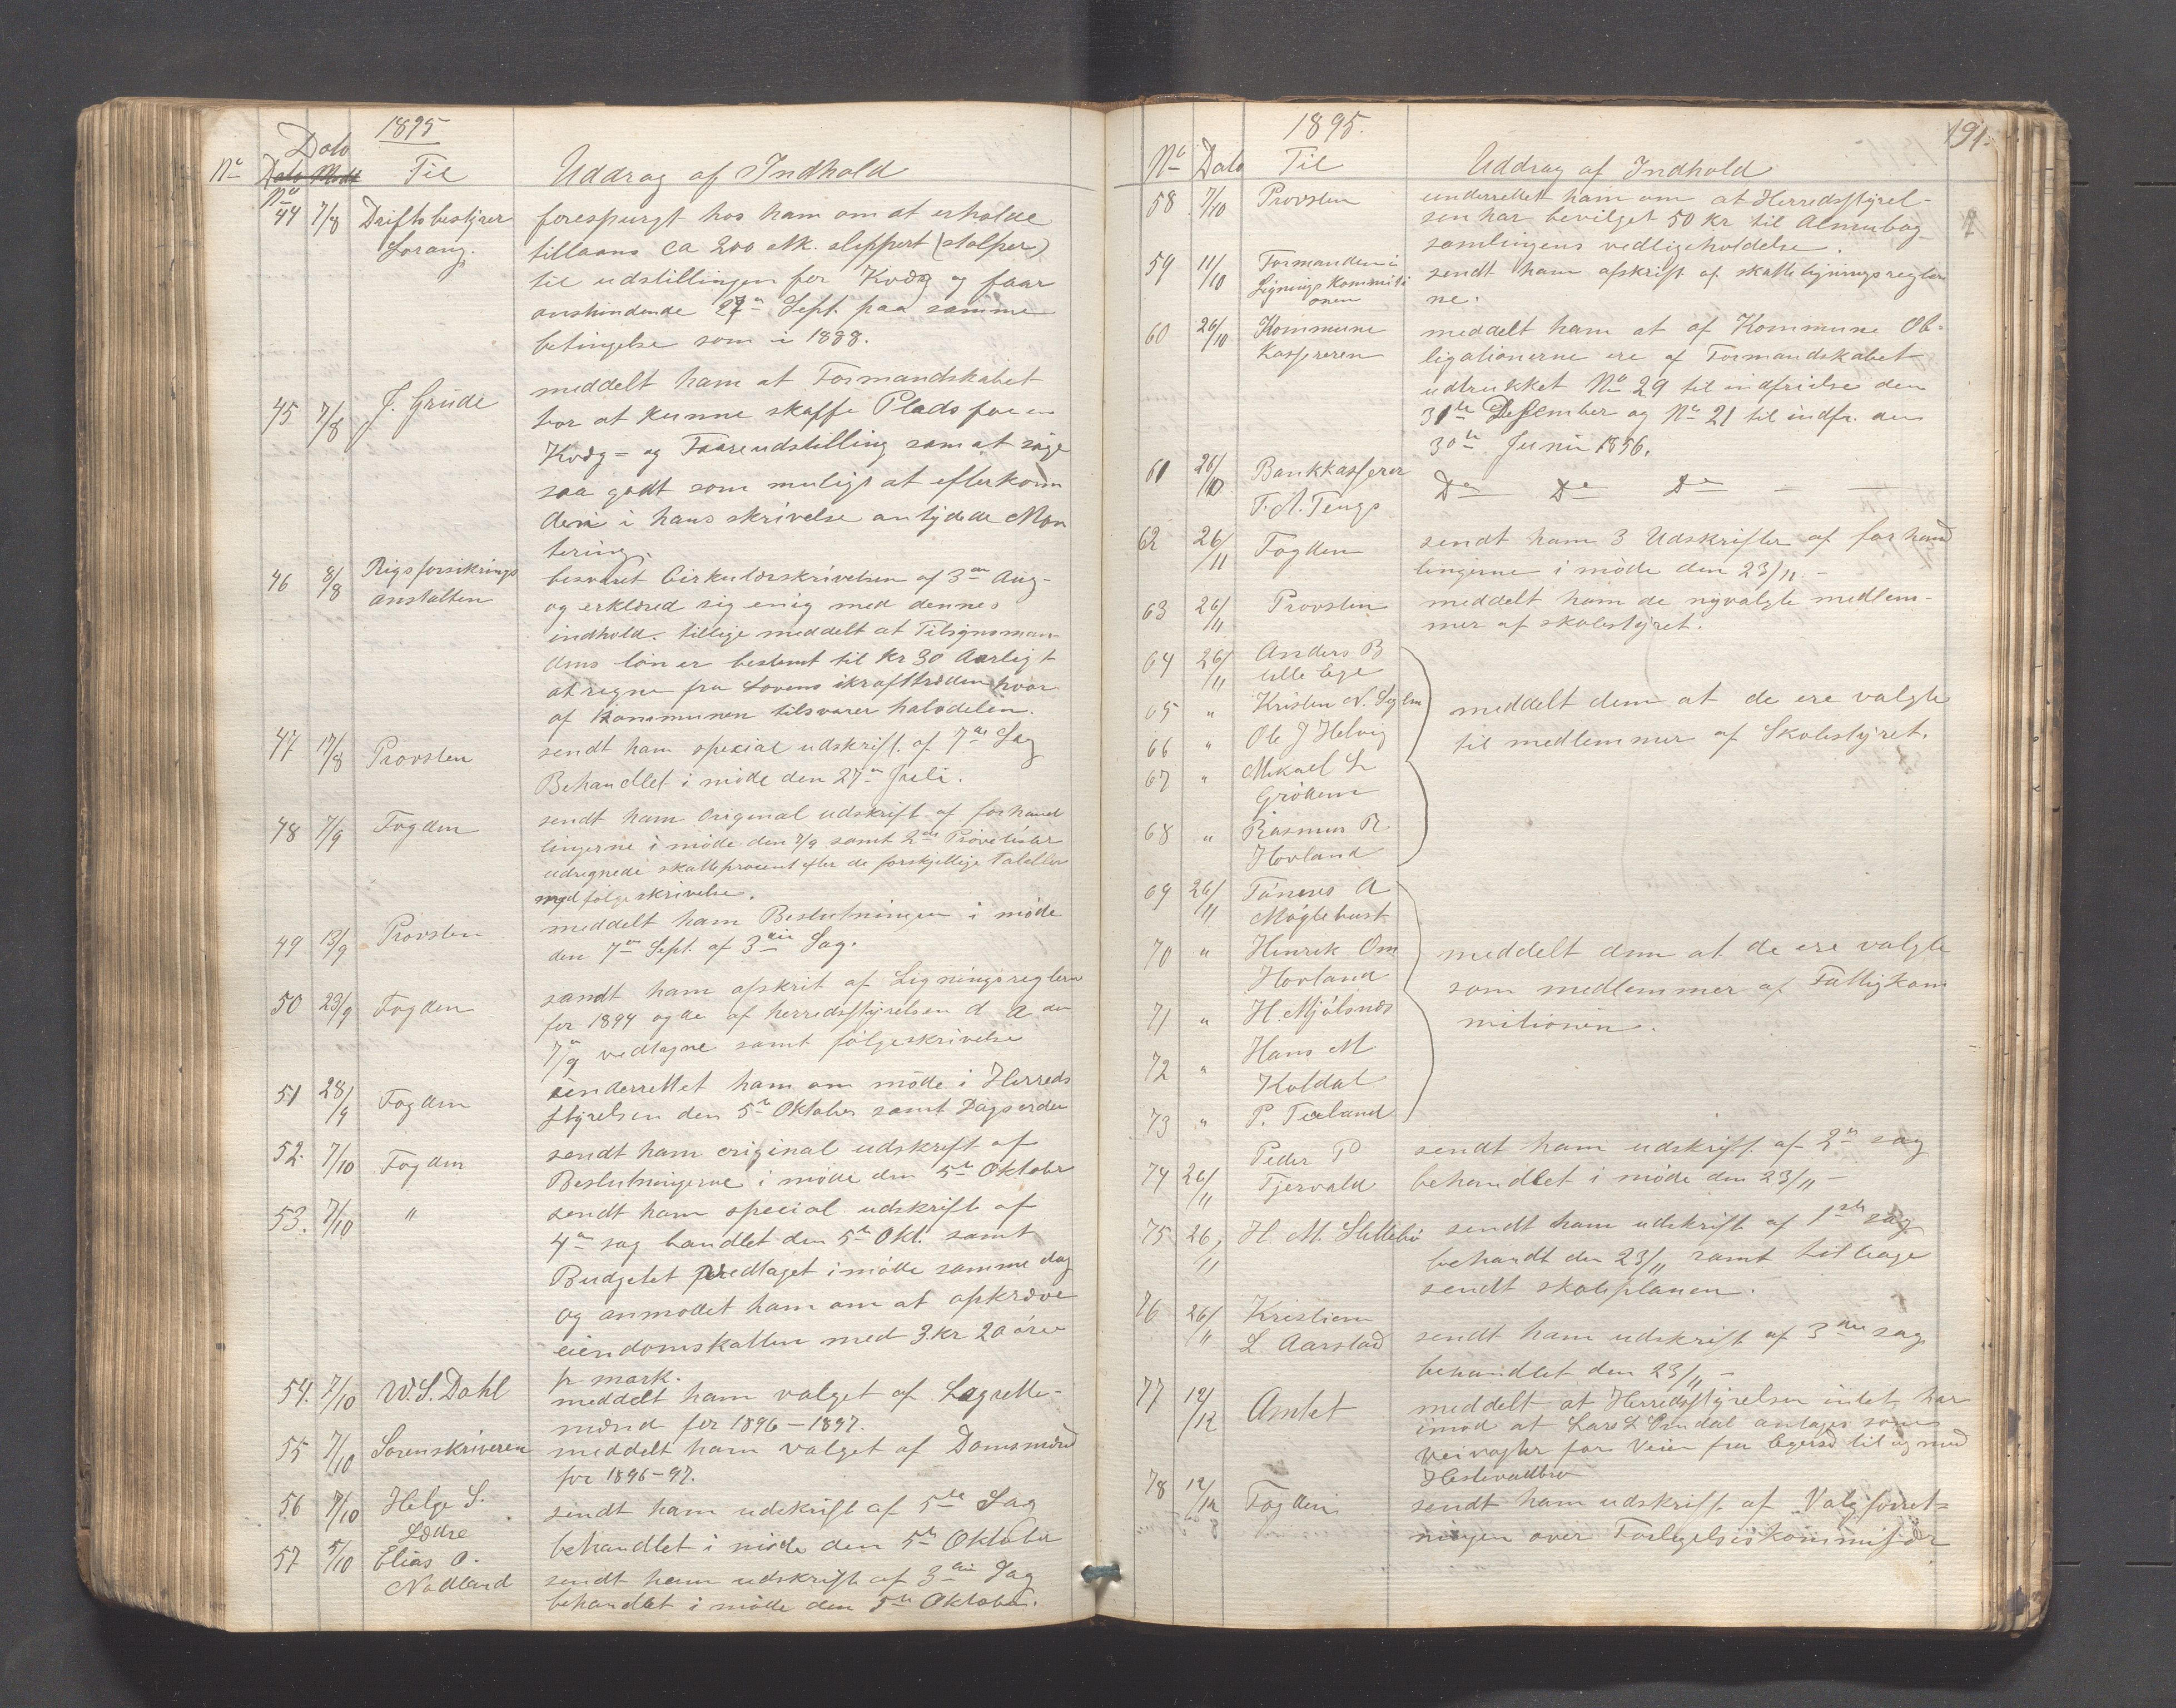 1895
Dato
No Til Uddrag af Indhold
No
44 7/8 Driftsbestyrer forespurgt hos ham om at erholde
Lorang. tillaans ca 200 stk. slippert (stolper)
til udstillingen for Kvæg og faar
anstundende 27de Sept. paa samme
betingelse som i 1888.
45 7/8 J. Grude meddelt ham at Formandskabet
tror at kunne skaffe Plads for en
Kvæg- og Faareudstilling samt at søge
saa godt som muligt at efterkom
den i hans skrivelse antydede Mon
tering.
46 8/8 Rigsforsikrings besvaret Cirkulærskrivelsen af 3die Aug-
anstalten og erklæred sig enig med dennes
indhold. tillige meddelt at Tilsynsman-
dens løn er bestemt til Kr 30 Aarligt
at regne fra Lovens ikrafttræden hvor
af Kommunen tilsvarer halvdelen.
47 17/8 Provsten sendt ham special udskrift af 7de Sag
Behandlet i møde den 27de Juli.
48 7/9 Fogden sendt ham Original udskrift af forhand
lingerne i møde den 7/9 samt 2de Prøvelister
udregnede skatteprocent efter de forskjellige Tabeller
med følgeskrivelse.
49 13/9 Provsten meddelt ham Beslutningen i møde
den 7de Sept. af 3die Sag.
50 23/9 Fogden sendt ham afskrit af Ligningsreglerne
for 1894 og de af herredsstyrelsen d. a. den
7/9 vedtagne samt følgeskrivelse
51 28/9 Fogden underrettet ham om møde i Herreds
styrelsen den 5te Oktober samt Dagsorden
52. 7/10 Fogden sendt ham original udskrift af
Beslutningerne i møde den 5te Oktober
53. 7/10 " sendt ham special udskrift af
4de sag handlet den 5te Okt. samt
Budgetet vedtaget i møde samme dag
og anmodet ham om at opkræve
eiendomskatten med 3 kr 20 øre
pr mark.
54. 7/10 W. S. Dahl meddelt ham valget af Lagrette-
mænd for 1896-1897.
55 7/10 Sorenskriveren meddelt ham valget af Domsmænd
for 1896-97.
56 7/10 Helge S. sendt ham udskrift af 5te Sag
Lædre behandlet i møde den 5te Oktober
57 5/10 Elias O. sendt ham udskrift af 3die Sag
Nodland behandlet i møde den 5te Oktober.
191.
1895.
No Dato Til Uddrag af Indhold
58 7/10 Provsten underrettet ham om at Herredsstyrel-
sen har bevilget 50 kr til Almubog-
samlingens vedligeholdelse.
59 11/10 Formanden i sendt ham afskrift af skatteligningsregler
Lignings Kommissi ne.
onen
60 26/10 Kommune meddelt ham at af Kommune Ob-
Kassereren ligationerne ere af Formandskabet
udtrukket No 29 til indfrielse den
31te Desember og No 21 til indfr. den
30te Juni 1896.
61 26/10 Bankkasserer Do Do Do - -
T. A. Tengs
62 26/11 Fogden sendt ham 3 Udskrifter af forhand
lingerne i møde den 23/11 -
63 26/11 Provsten meddelt ham de nyvalgte medlem-
mer af skolestyret.
64 26/11 Anders B
Lille Ege
65 " Kristen N. Seglem meddelt dem at de ere valgte
66 " Ole J Helvig til medlemmer af Skolestyret.
67 " Mikael L
Grødem
68 " Rasmus R
Hovland
69 26/11 Tønnes A
Møglebust
70 " Henrik Om meddelt dem at de ere valgte
Hovland som medlemmer af Fattigkom
71 " H. Mjølsnæs mitionen.
72 " Hans M
Koldal
73 " P. Tueland
74 26/11 Peder P sendt ham udskrift af 2den sag
Tjervald behandlet i møde den 23/11 -
75 26/11 H. M. Skillebø sendt ham udskrift af 1ste sag
behandt den 23/11 samt tilbage
sendt skoleplanen.
76 26/11 Kristian
L Aarstad sendt ham udskrift af 3die sag
behandlet den 23/11 -
77 12/12 Amtet meddelt at Herredsstyrelsen intet har
imod at Lars L Omdal antages som
Veivogter for Veien fra Egersd til og med
Hestvadbro
78 12/12 Fogden sendt ham udskrift af Valgforret-
ningen over Forligelsiskommisær